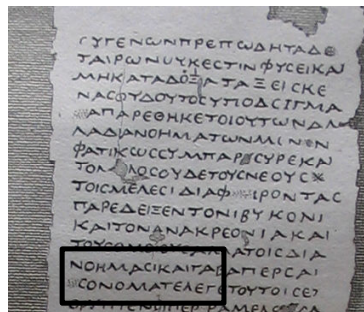 ΓΥΓΕΝΩΝΠΡΕΠΩΔΗΤΑΔΕ
ΤΑΙΡΩΝΟΥΚΕСΤΙΝΦΥСΕΙΚΑΙ
ΜΗΚΑΤΑΔΟΞΑΤΑΞΕΙСΚΕ
ΝΑСΟΥΔΟΥΤΟСΥΠΟΔСΙΓΜΑ
ΑΠΑΡΕΘΗΚΕΤΟΙΟΥΤΩΝΑΛ
ΛΑΔΙΑΝΟΗΜΑΤΩΝΜΙΝΟΝ
ΦΑΤΙΚΩССΥΜΠΑΡ СΥΡΕΚΑΙ
ΛΟСΟΥΔΕΤΟΥСΝΕΟΥС
ΤΟΙСΜΕΛΕСΙΔΙΑΦ ΙΡΟΝΤΑС
ΠΑΡΕΔΕΙΞΕΝΤΟΝΙΒΥΚΟΝΙ
ΚΑΙΤΟΝΑΝΑΚΡΕΟΝΙΑΚΑΙ
ΑΤΟΙСΔΙΑ
ΝΟΗΜΑСΙΚΑΙΤΑΒΑΠΕΡСΑΙ
СΟΝΟΜΑΤΕΛΕΓΕΤΟΥΤΟΙСΕ